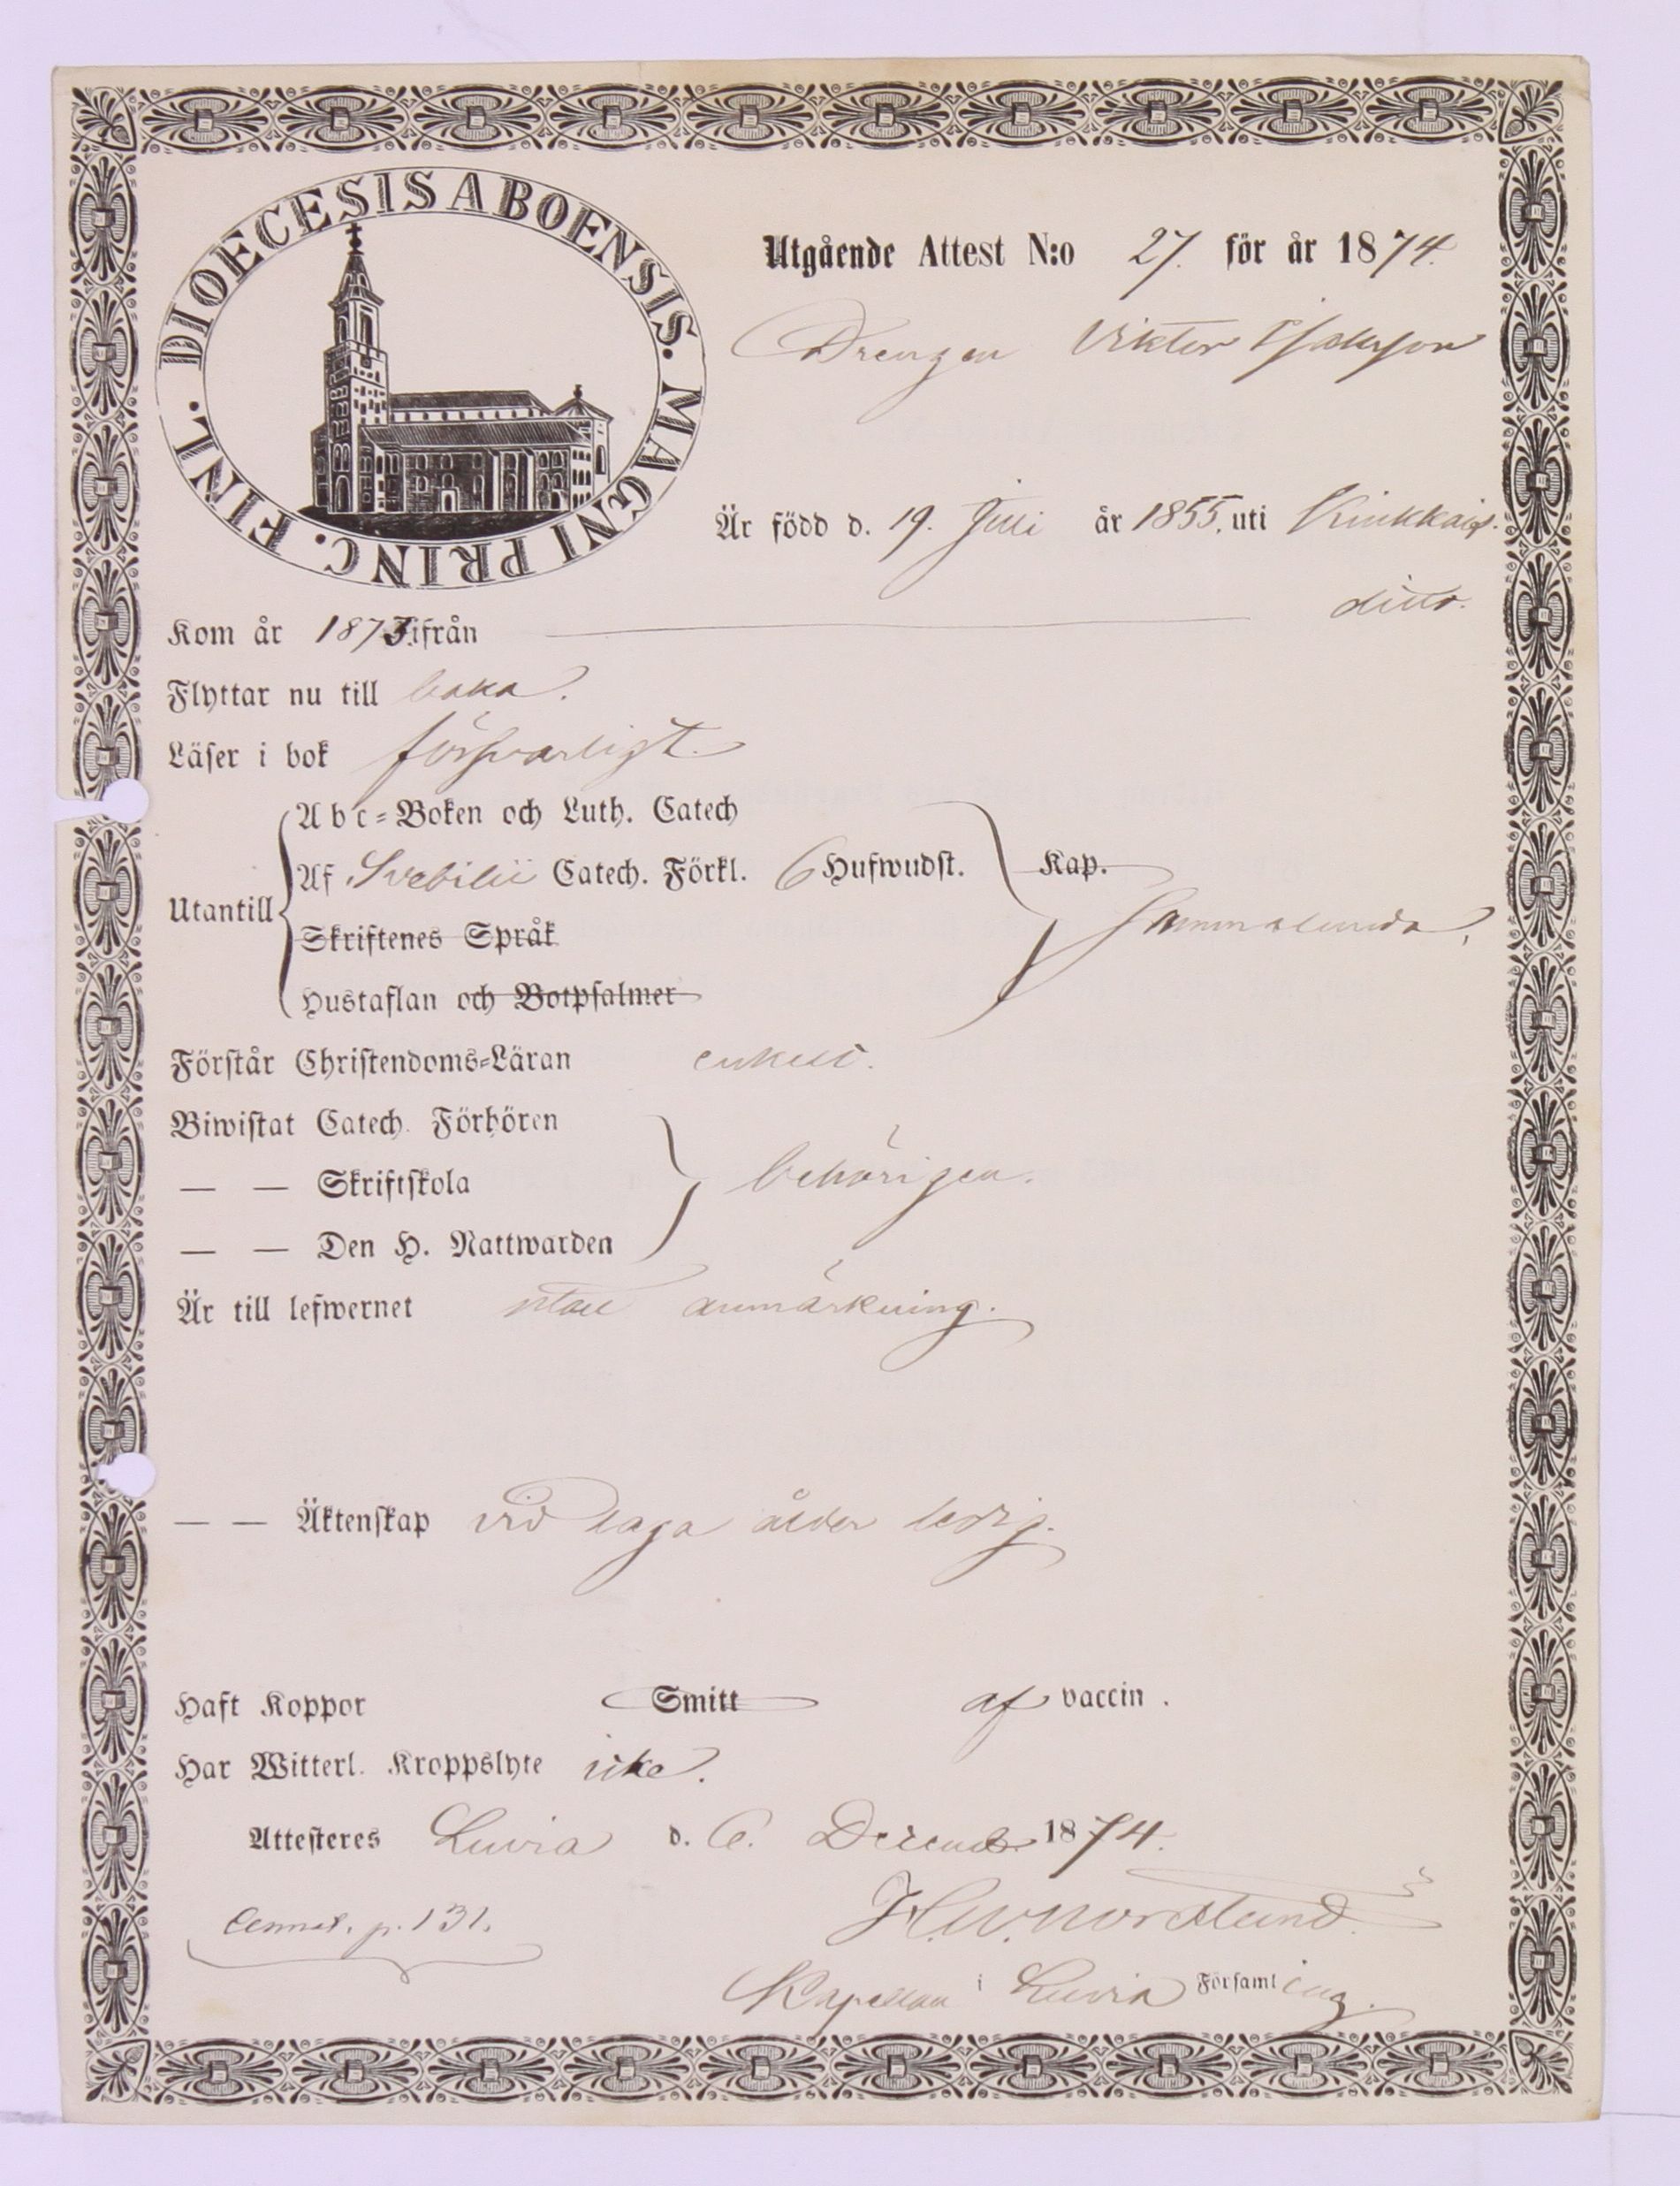 DIOECESIS ABOENSIS. MAGNI PRINC. FINL.
Utgående Attest N:o 27. för år 1874.
Drengen Viktor Isaksson
Är född d. 19. Juli år 1855. uti Kiukkais.
Kom år 1873 ifrån ditto.
Flyttar nu till baka.
Läser i bok försvarligt.
Utantill
Abc-Boken och Luth. Catech
Af Svebilii Catech. Förkl. 6 Hufwudst. Kap.
Skriftenes Språk
Hustaflan och Botpsalmer
sammalunda.
Förstår Christendoms-Läran enkelt.
Biwistat Catech. Förhören
— — Skriftskola
behörigen.
— — Den H. Nattwarden
Är till lefwernet utan anmärkning.
— — Äktenskap vid laga ålder ledig.
Haft Koppor Smitt af vaccin.
Har Witterl. Kroppslyte icke.
Attesteres Luvia d. 6. Decemb. 1874.
H.W. Nordlund.
p. 131.
Kapellan i Luvia Församling.